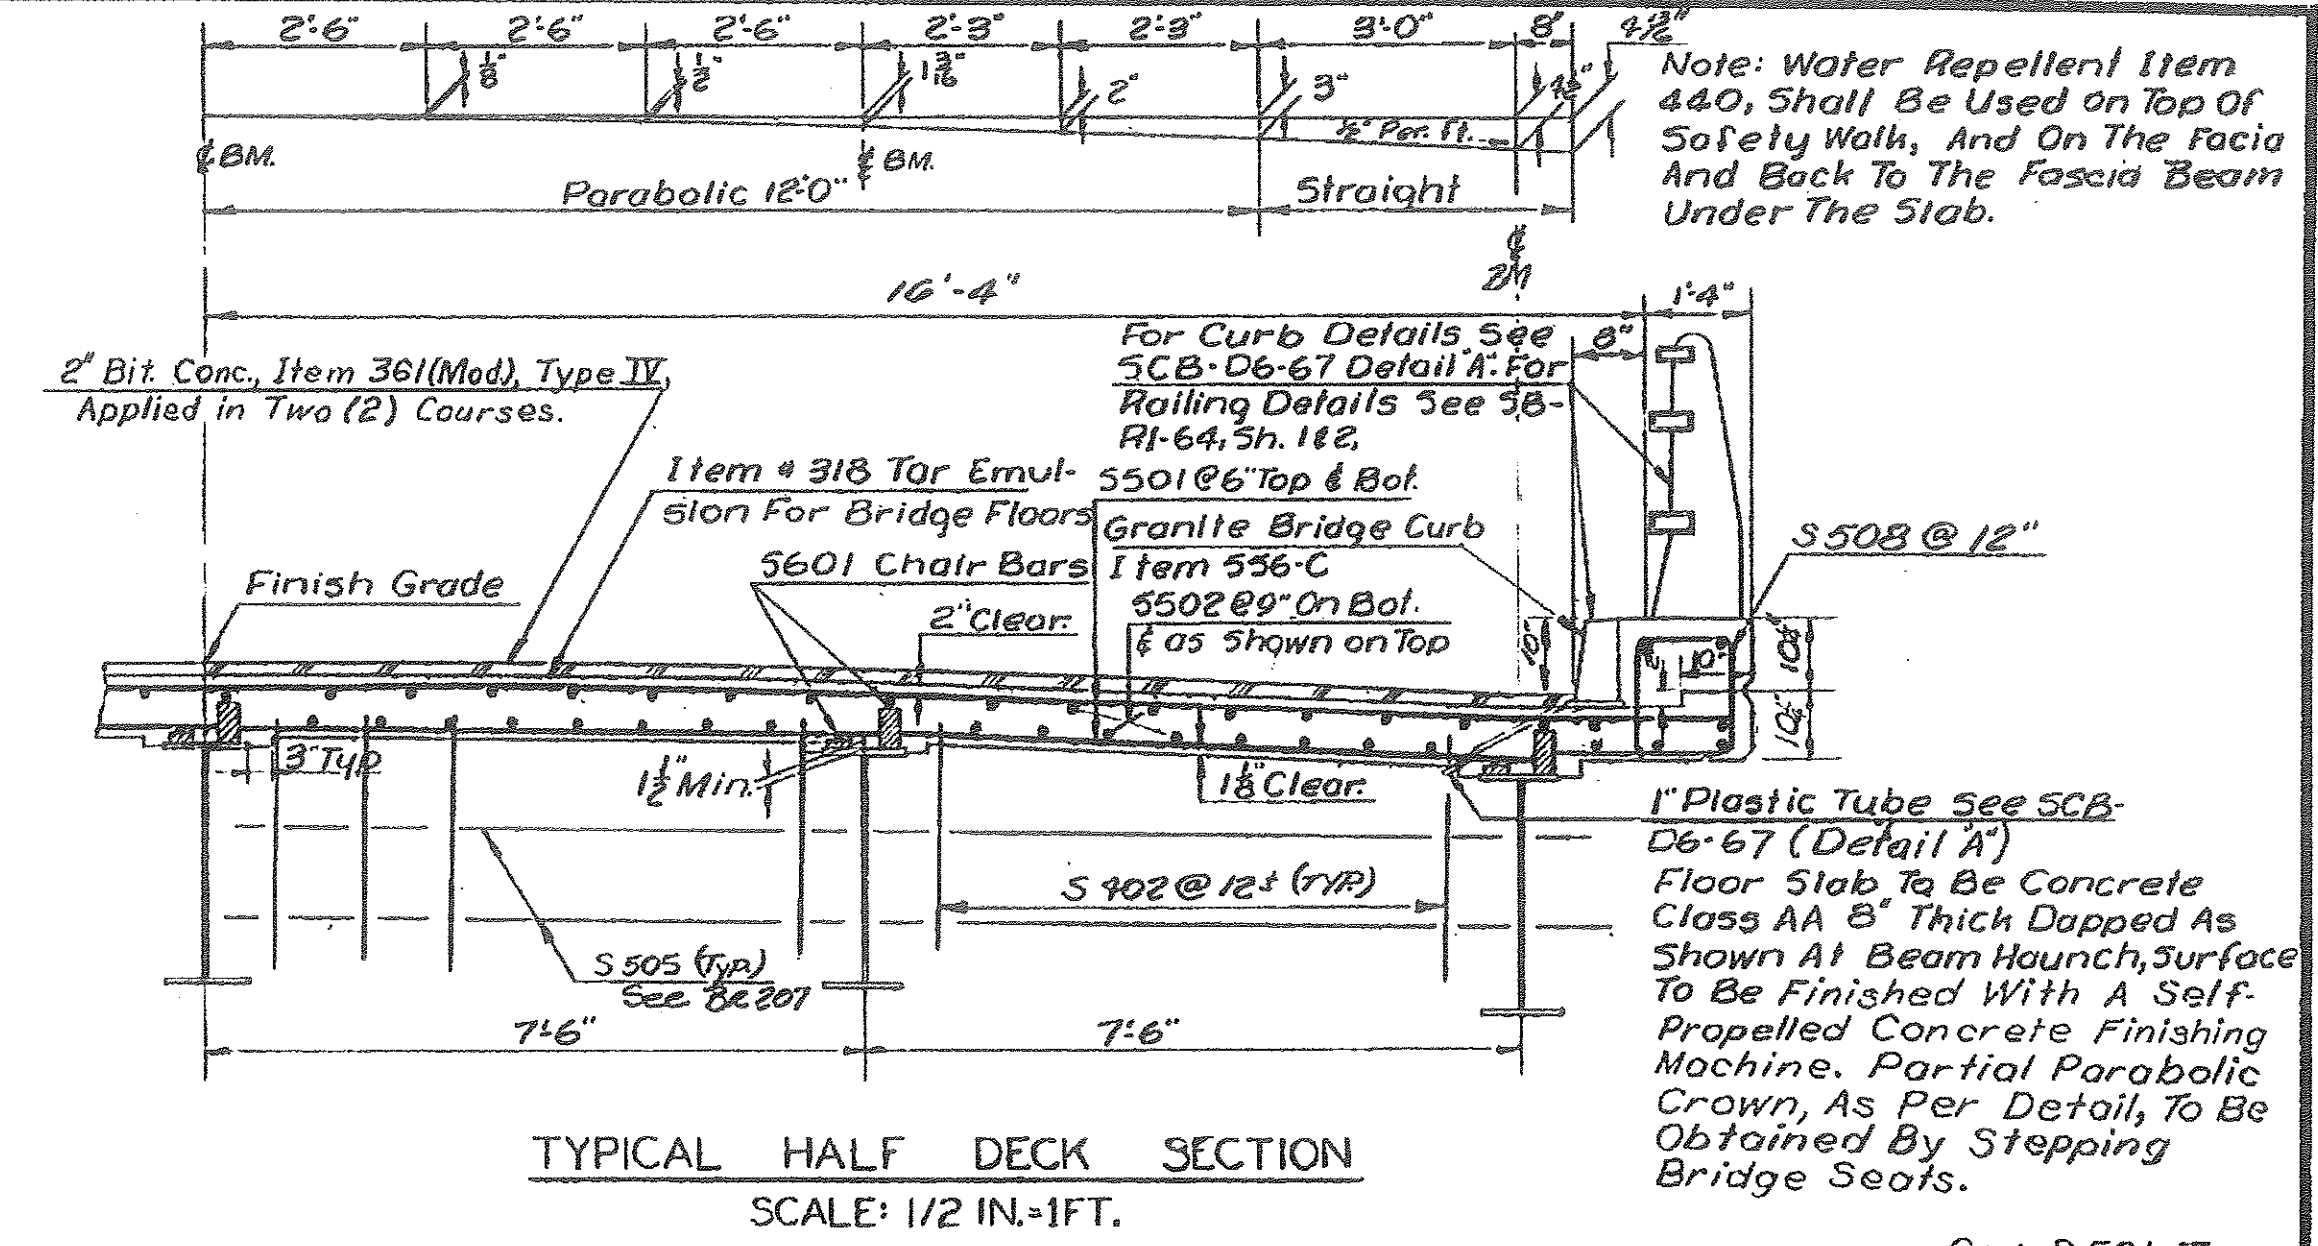 2'-6" 2'-6" 2'-6" 2'-3" 2'-3" 3'-0" 8"
1/8" 1/2" 1 3/16" 2" 3" 4 1/2"
1/2" Per. ft.
℄ BM. ℄ BM.
Parabolic 12'-0" Straight
℄
BM
Note: Water Repellent Item
440, Shall Be Used On Top Of
Safety Walk, And On The Facia
And Back To The Fascia Beam
Under The Slab.
16'-4" 1'-4"
8"
For Curb Details See
SCB-D6-67 Detail "A". For
Railing Details See SB-
R1-64, Sh. 1&2,
2" Bit. Conc., Item 361(Mod), Type IV,
Applied in Two (2) Courses.
Item # 318 Tar Emul-
sion For Bridge Floors
S501 @ 6" Top & Bot.
Granite Bridge Curb
Item 556-C
S508 @ 12"
S601 Chair Bars
S502 @ 9" On Bot.
& as Shown on Top
Finish Grade
2" Clear.
10"
3" Typ
1 1/2" Min.
1 1/8" Clear.
1" Plastic Tube See SCB-
D6-67 (Detail "A")
S 402 @ 12± (TYP.)
S 505 (Typ.)
See BR 207
Floor Slab To Be Concrete
Class AA 8" Thick Dapped As
Shown At Beam Haunch, Surface
To Be Finished With A Self-
Propelled Concrete Finishing
Machine. Partial Parabolic
Crown, As Per Detail, To Be
Obtained By Stepping
Bridge Seats.
7'-6" 7'-6"
TYPICAL HALF DECK SECTION
SCALE: 1/2 IN.=1FT.